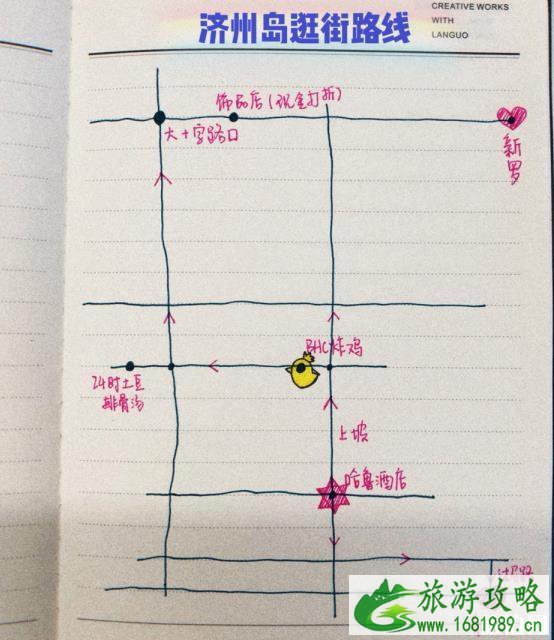 CREATIVE WORKS
WITH
LANGUO
济州岛逛街路线
饰品店(现金打折)
大十字路口
新
罗
BHC炸鸡
24时土豆
排骨汤
上坡
哈鲁酒店
旅游攻略
www.1681989.cn